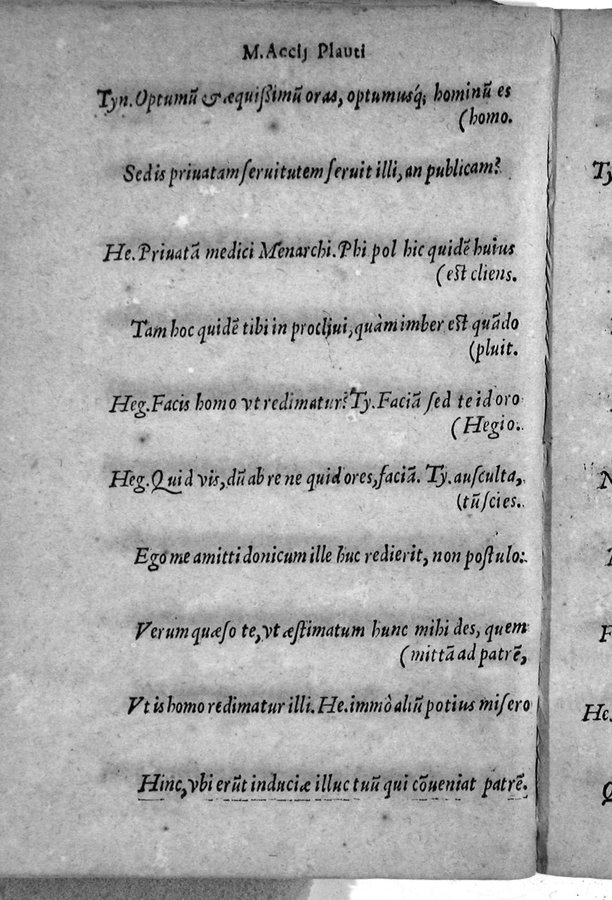 M. Accij Plauti
Tyn. Optumū & æquißimū oras, optumusq́; hominū es
(homo.
Sed is priuatam ſeruitutem ſeruit illi, an publicam?
He. Priuatā medici Menarchi. Phi pol hic quidē huius
(est cliens.
Tam hoc quidē tibi in procliui, quàm imber est quādo
(pluit.
Heg. Facis homo vt redimatur? Ty. Faciā ſed te id oro
(Hegio.
Heg. Quid vis, dū ab re ne quid ores, faciā. Ty. auſculta,
(tū ſcies.
Ego me amitti donicum ille huc redierit, non poſtulo:
Verum quæſo te, vt æſtimatum hunc mihi des, quem
(mittā ad patrē,
Vt is homo redimatur illi. He. immò aliū potius miſero
Hinc, vbi erūt induciæ illuc tuū qui cōueniat patrē.
Ty
N
F
He.